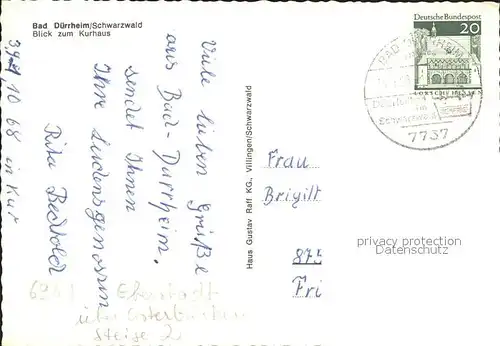 Bad Dürrheim/Schwarzwald
Blick zum Kurhaus
Viele lieben Grüße
aus Bad-Dürrheim.
sendet Ihnen
Ihre Leidensgenossin
Rita Bechtold
10 68 in Kur
6961 Eberstadt
über Osterburken
Steige 2
Haus Gustav Raff KG., Villingen/Schwarzwald
Deutsche Bundespost
20
LORSCH/HESSEN
BAD DÜRRHEIM
Schwarzwald
7737
Frau
Brigitt
875
Fri
privacy protection
Datenschutz